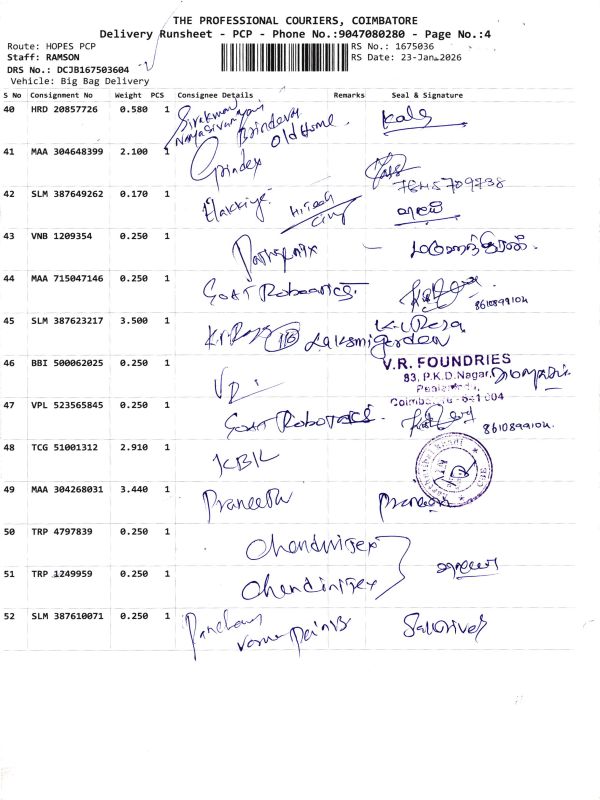 THE PROFESSIONAL COURIERS, COIMBATORE
Delivery Runsheet - PCP - Phone No.:9047080280 - Page No.:4
Route: HOPES PCP RS No.: 1675036
Staff: RAMSON RS Date: 23-Jan-2026
DRS No.: DCJB167503604
Vehicle: Big Bag Delivery
S No Consignment No Weight PCS Consignee Details Remarks Seal & Signature
40 HRD 20857726 0.580 1 Brindavan Old Home Kala
41 MAA 304648399 2.100 1 Grindex
42 SLM 387649262 0.170 1 Elakkiya HiTech City
43 VNB 1209354 0.250 1
44 MAA 715047146 0.250 1 GOAT Robotics 8610899104
45 SLM 387623217 3.500 1 K.V. Raja 116 Laksmi garden K.V. Raja
46 BBI 500062025 0.250 1 V.R. FOUNDRIES
83, P.K.D.Nagar,
Coimbatore - 641 004
47 VPL 523565845 0.250 1 GOAT Robotics 8610899104
48 TCG 51001312 2.910 1 KBK
49 MAA 304268031 3.440 1 Praneetha
50 TRP 4797839 0.250 1
51 TRP 1249959 0.250 1
52 SLM 387610071 0.250 1 paints